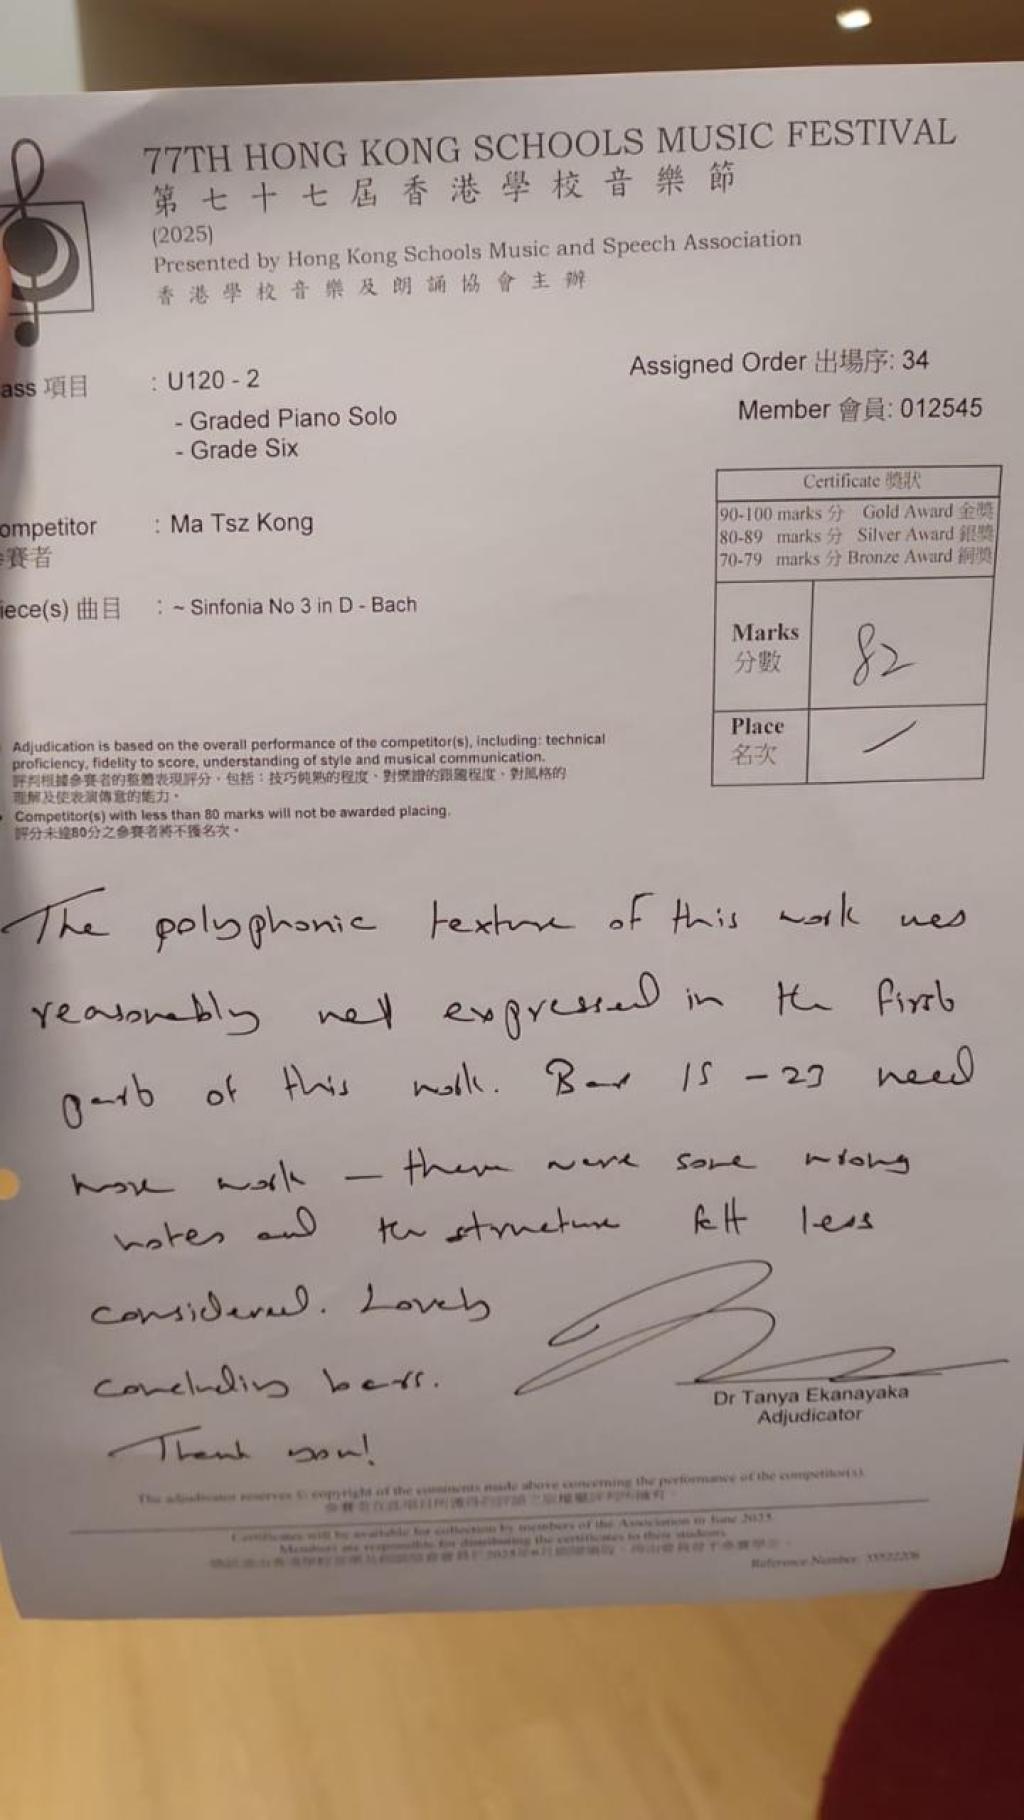 77TH HONG KONG SCHOOLS MUSIC FESTIVAL
第七十七屆香港學校音樂節
(2025)
Presented by Hong Kong Schools Music and Speech Association
香港學校音樂及朗誦協會主辦
ass 項目 : U120 - 2
- Graded Piano Solo
- Grade Six
Assigned Order 出場序: 34
Member 會員: 012545
ompetitor : Ma Tsz Kong
賽者
iece(s) 曲目 : ~ Sinfonia No 3 in D - Bach
Certificate 獎狀
90-100 marks 分 Gold Award 金獎
80-89 marks 分 Silver Award 銀獎
70-79 marks 分 Bronze Award 銅獎
Marks 82
分數
Place /
名次
Adjudication is based on the overall performance of the competitor(s), including: technical
proficiency, fidelity to score, understanding of style and musical communication.
評判根據參賽者的整體表現評分，包括：技巧純熟的程度、對樂譜的跟隨程度、對風格的
理解及使表演傳意的能力。
Competitor(s) with less than 80 marks will not be awarded placing.
評分未達80分之參賽者將不獲名次。
The polyphonic texture of this work was
reasonably well expressed in the first
part of this work. Bar 15 - 23 need
more work — there were some wrong
notes and the structure felt less
considered. Lovely
concluding bars.
Thank you!
Dr Tanya Ekanayaka
Adjudicator
The adjudicator reserves © copyright of the comments made above concerning the performance of the competitor(s).
Certificates will be available for collection by members of the Association in June 2025.
Members are responsible for distributing the certificates to their students.
Reference Number: